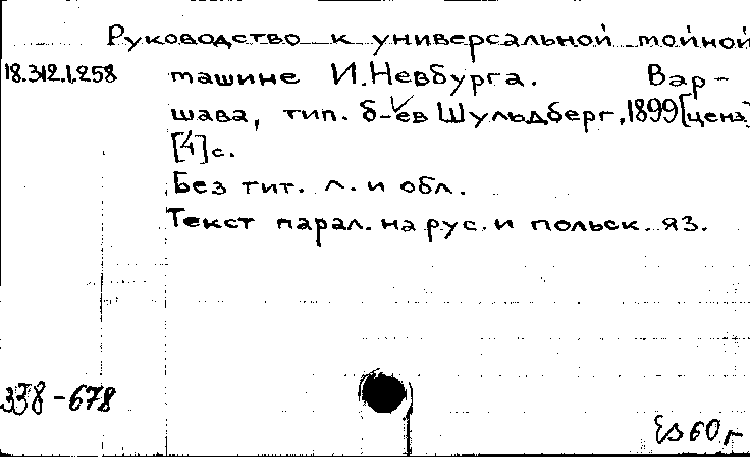 Руководство к универсальной мойной
18.312.1.258 машине И. Невбурга. Вар-
шава, тип. б-ев Шульдберг, 1899 [цена]
[4] с.
Без тит. л. и обл.
Текст парал. на рус. и польск. яз.
338-678
60 г